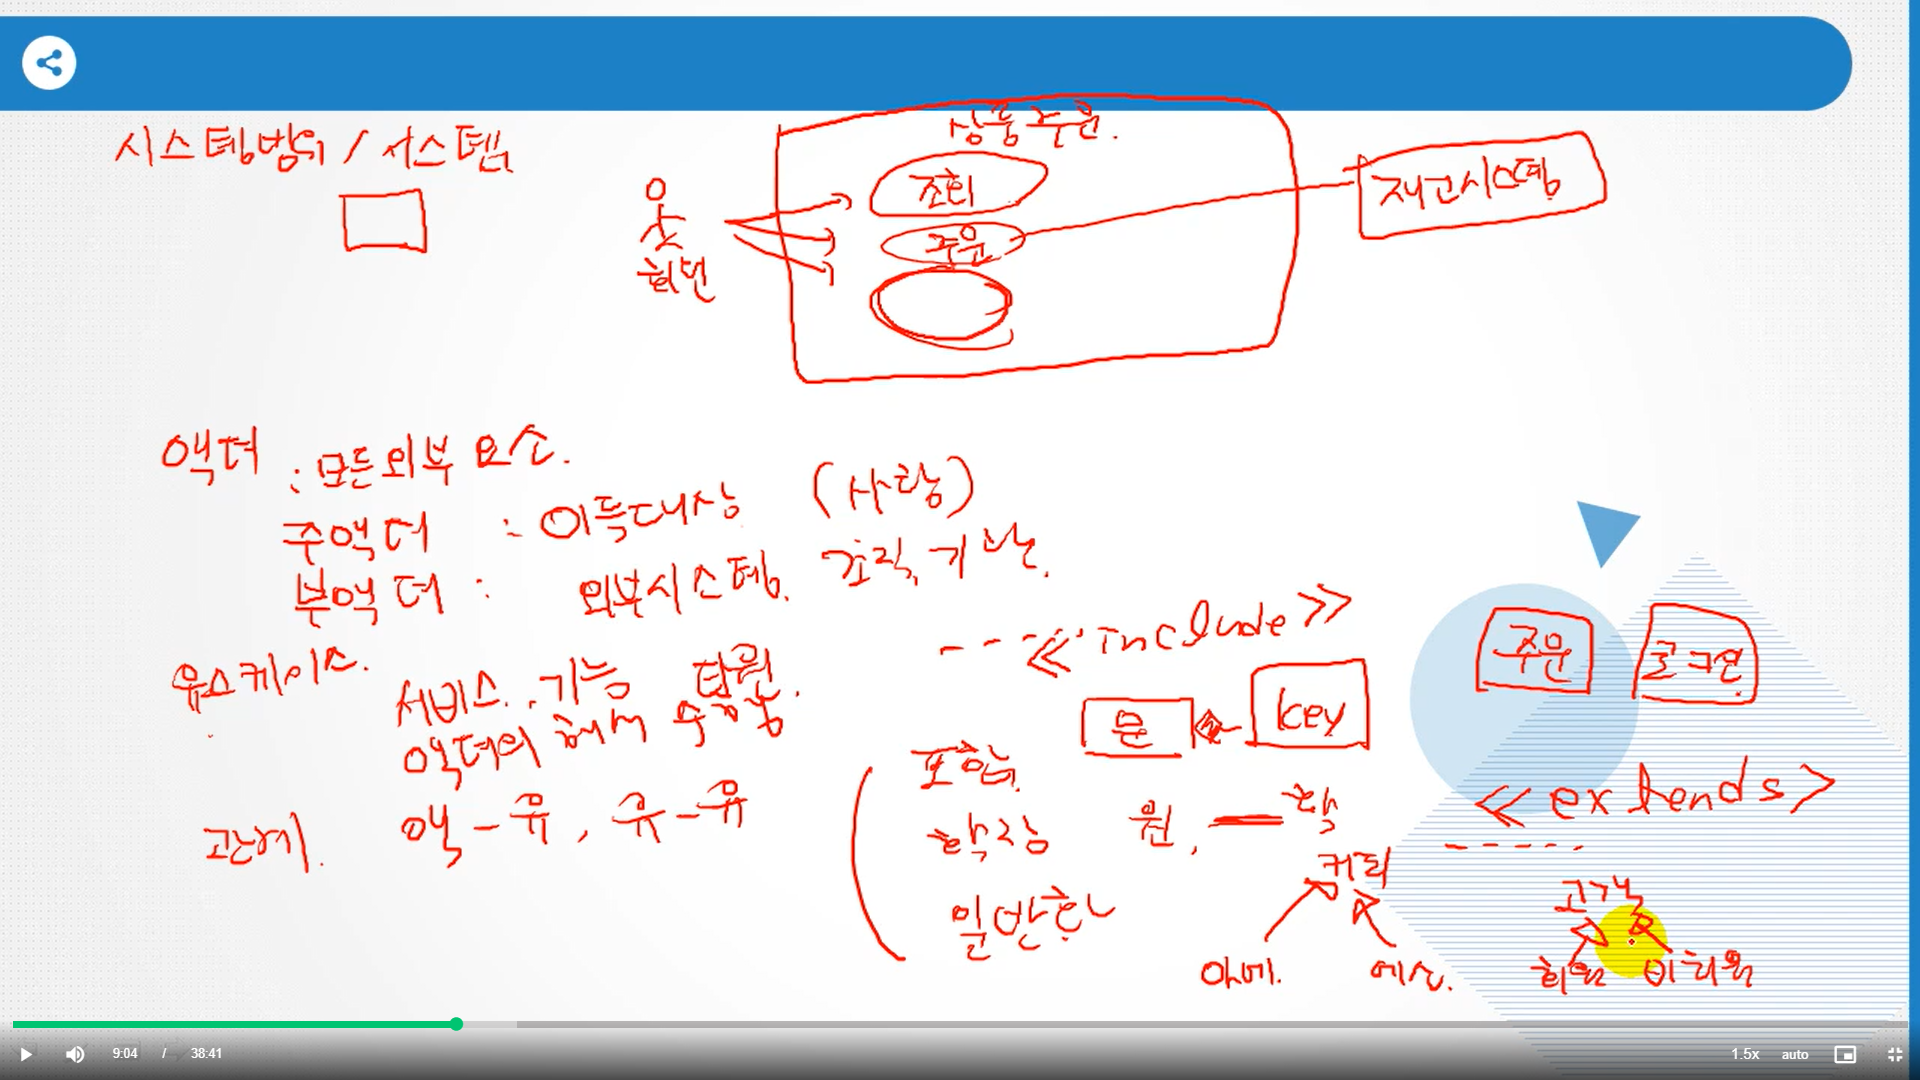 시스템범위 / 시스템
상품주문.
조회
주문
회원
재고시스템
액터 : 모든 외부 요소.
주액터 : 이득대상 (사람)
부액터 : 외부시스템, 조직, 기관.
유스케이스.
서비스, 기능 단위.
액터의 해서 수행
관계. 액-유, 유-유
--- <<include>>
문
key
포함,
확장
일반화
원, 확
주문
로그인
<<extends>
커피
아메.
에스.
고객
회원
비회원
9:04 / 38:41
1.5x
auto